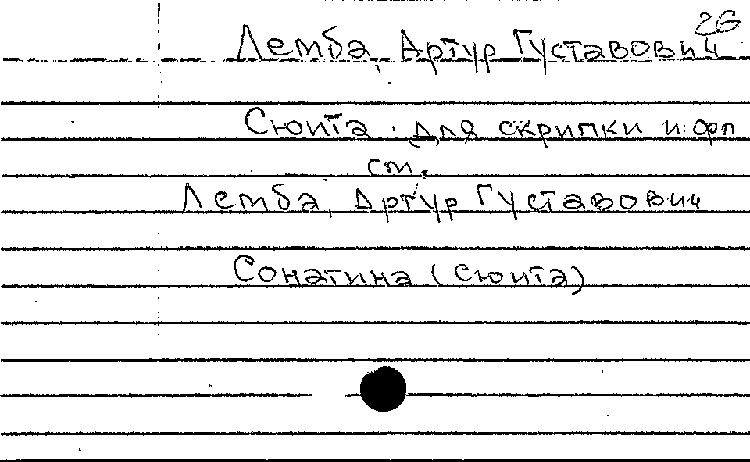 26
Лемба, Артур Густавович
Сюита. Для скрипки и фп
см.
Лемба, Артур Густавович
Сонатина (Сюита)